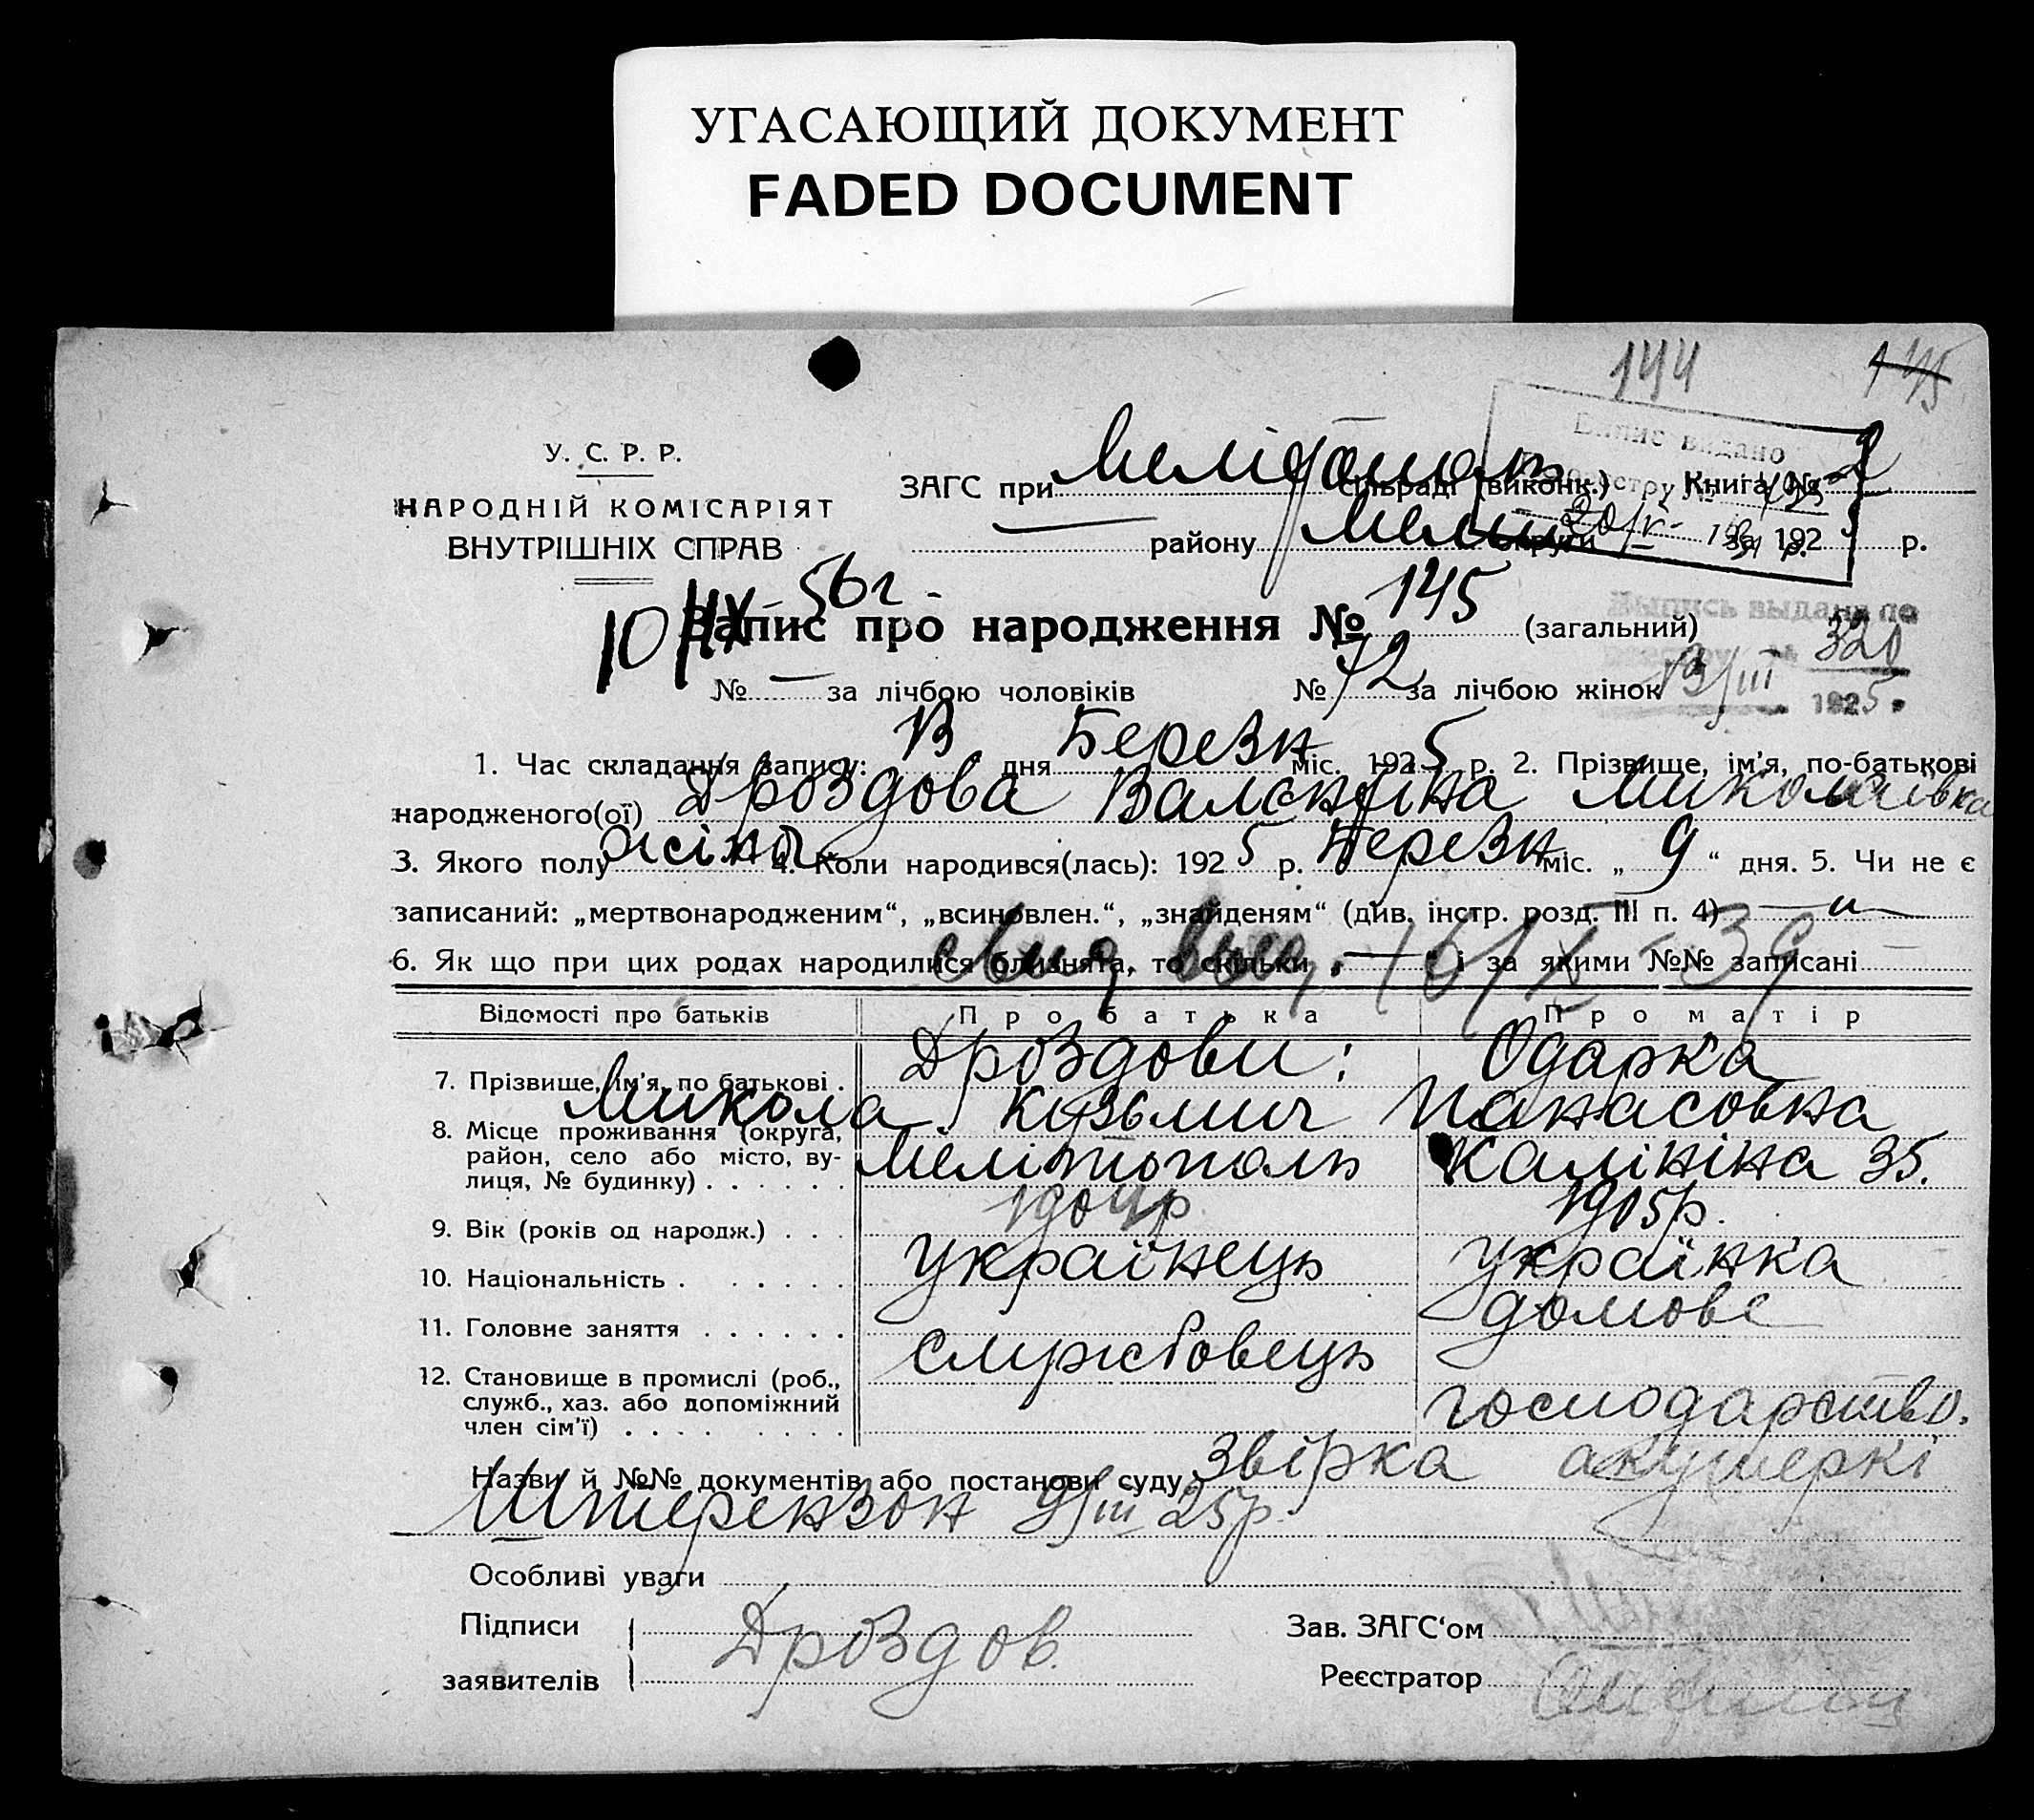 УГАСАЮЩИЙ ДОКУМЕНТ
FADED DOCUMENT
144 145
Випис видано
У. С. Р. Р.
ЗАГС при сільраді (виконк.) Книга № 2
НАРОДНІЙ КОМІСАРІЯТ
ВНУТРІШНІХ СПРАВ
району Меліт округи за 1925 р.
20/IV
10/IX 56 г
Запис про народження № 145 (загальний)
Выпись выдана по
320
№ — за лічбою чоловіків № 72 за лічбою жінок
13/III 1925.
1. Час складання запису: 13 дня Березн міс. 1925 р. 2. Прізвище, ім'я, по-батькові
народженого(ої) Дроздова Валєнтіна Миколаівна
3. Якого полу жіноч 4. Коли народився(лась): 1925 р. Березн міс. „ 9 “ дня. 5. Чи не є
записаний: „мертвонародженим“, „всиновлен.“, „знайденям“ (див. інстр. розд. III п. 4)
6. Як що при цих родах народилися близнята, то скільки „—“ і за якими №№ записані
Відомості про батьків Про батька Про матір
7. Прізвище, ім'я, по батькові . Дроздови: Одарка
Микола Кузьмич Панасовна
8. Місце проживання (округа,
район, село або місто, ву-
лиця, № будинку) . . . . . . Мелітополь Калініна 35.
9. Вік (років од народж.) . . . 1904р 1905р.
10. Національність . . . . . . українець українка
11. Головне заняття . . . . . . службовець домове
12. Становище в промислі (роб.,
служб., хаз. або допоміжний
член сім'ї) . . . . . . . . господарство.
Назви й №№ документів або постанови суду Звірка акушеркі
Штерензон 9/III 25р.
Особливі уваги
Підписи Зав. ЗАГС'ом
Дроздов.
заявителів Реєстратор